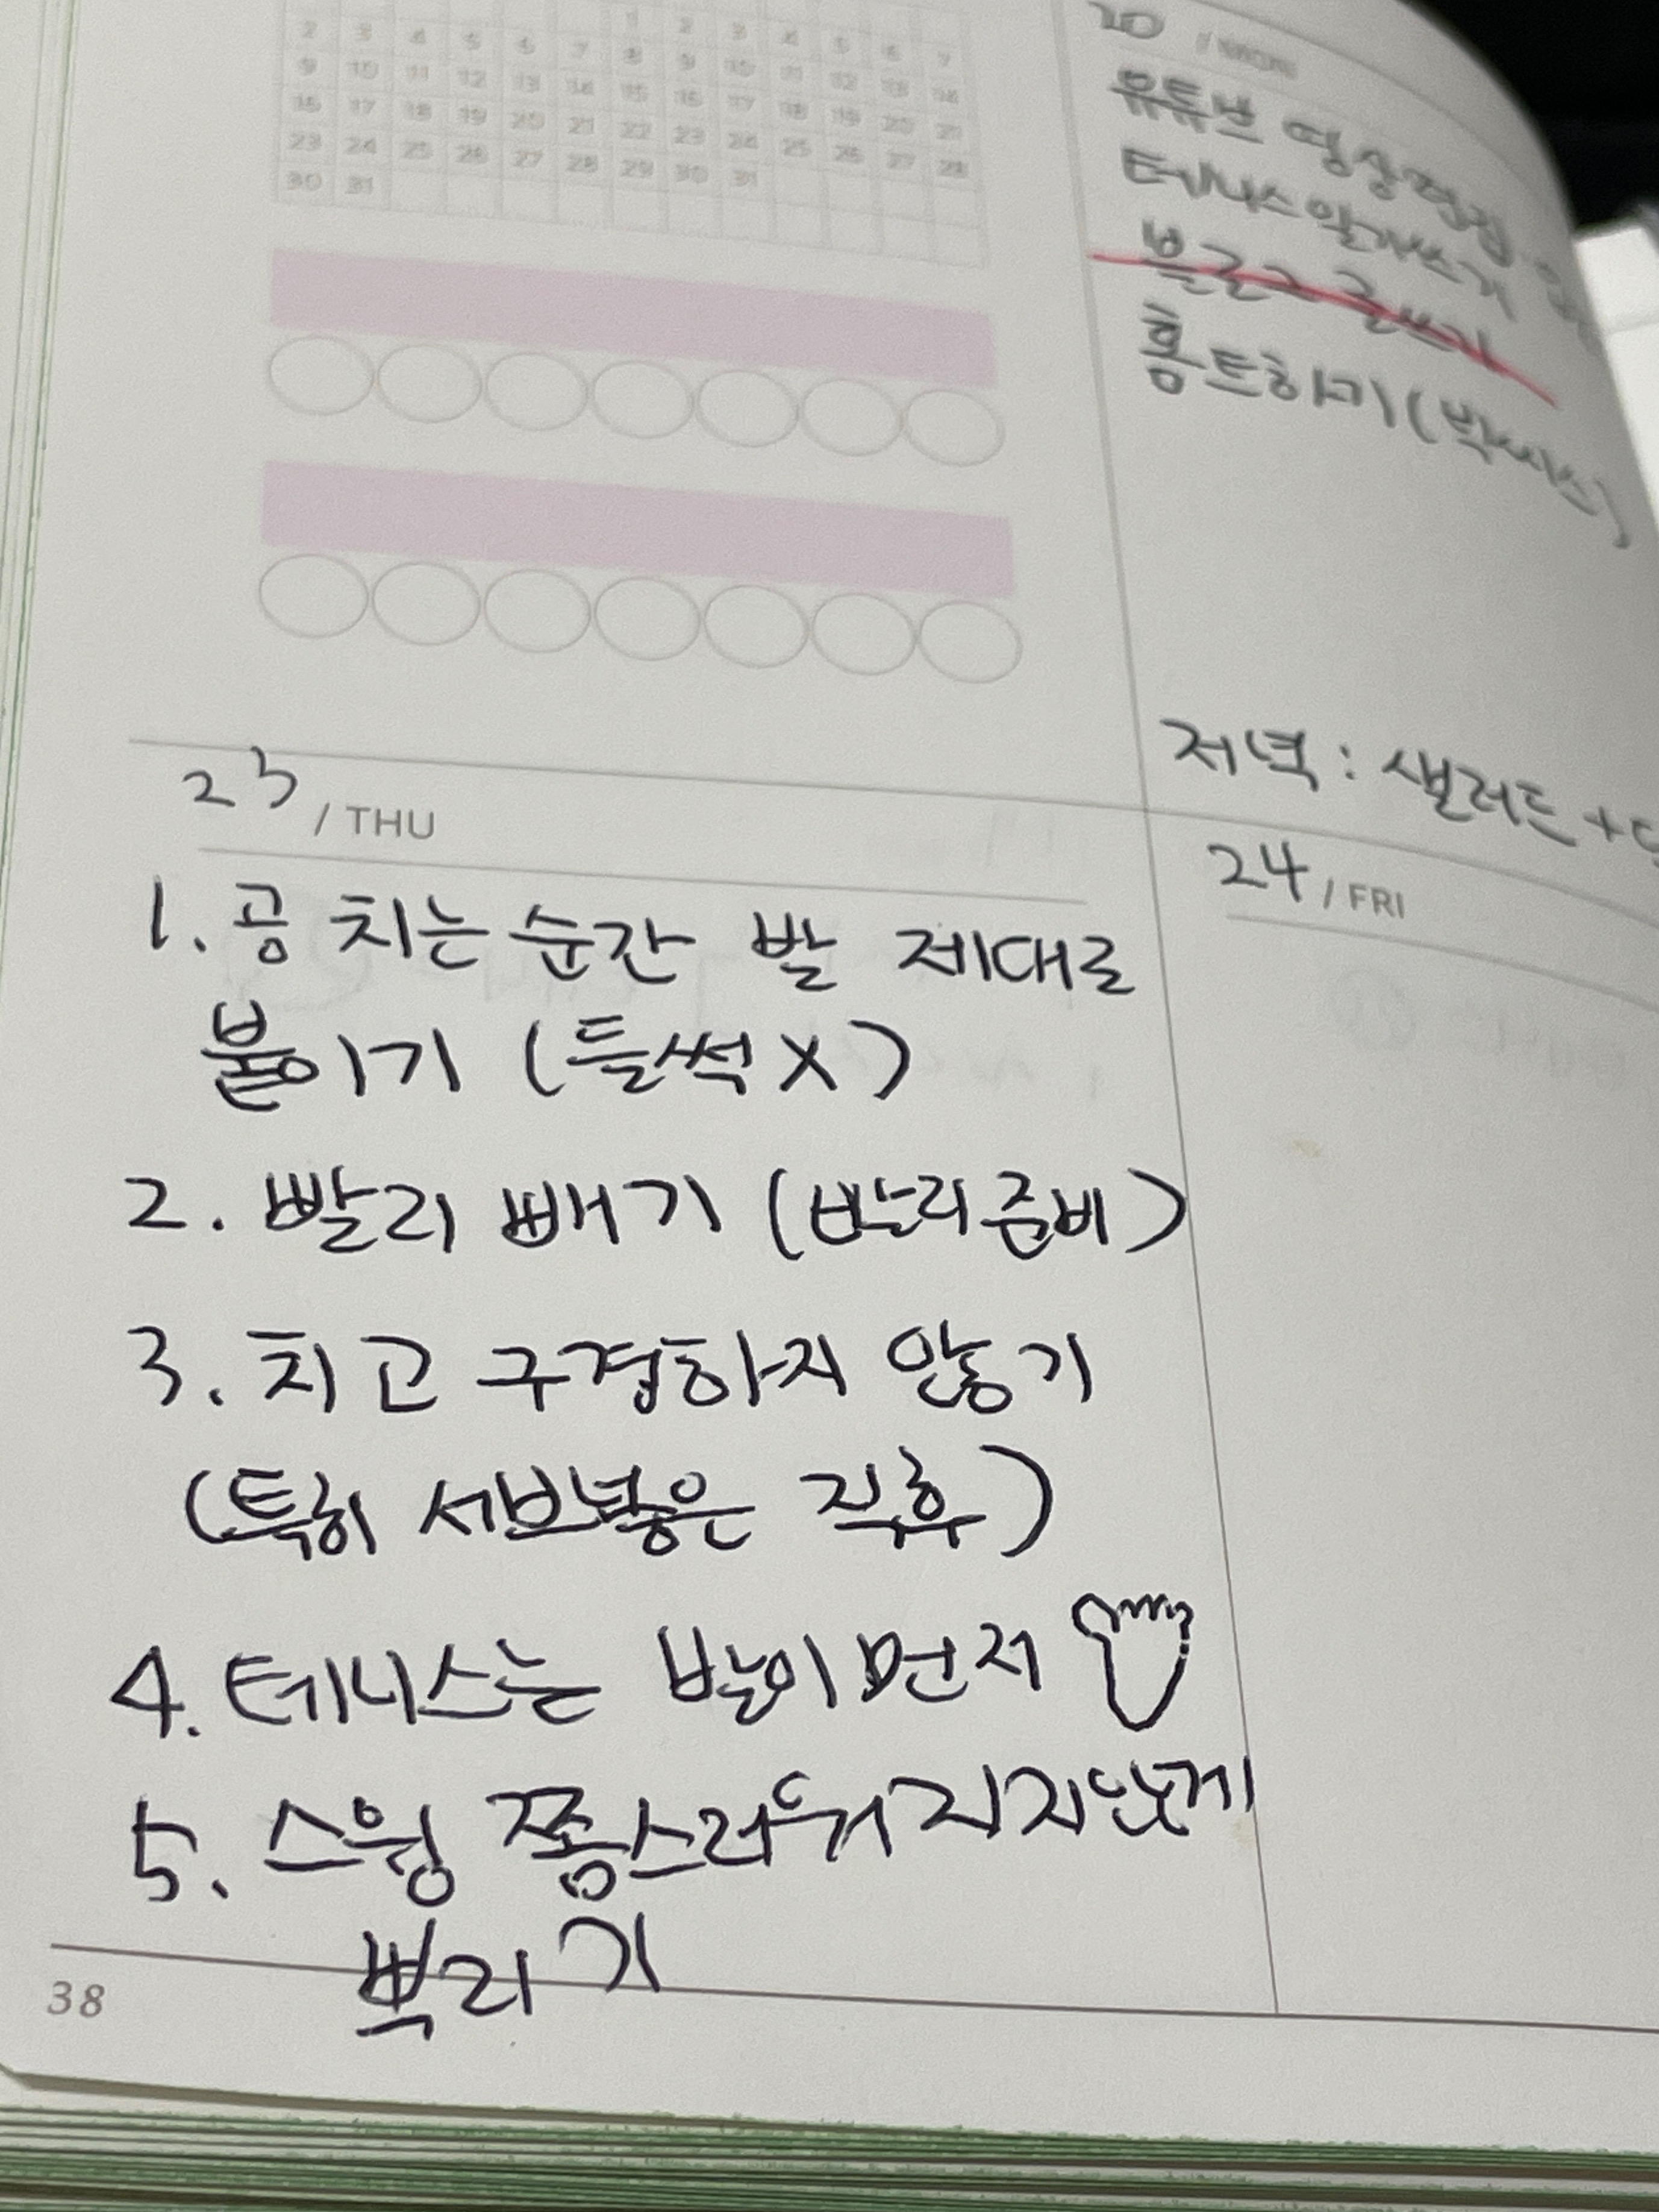 1 2 3 4 5 6 7
2 3 4 5 6 7 8 9 10 11 12 13 14
9 10 11 12 13 14 15 16 17 18 19 20 21
16 17 18 19 20 21 22 23 24 25 26 27 28
23 24 25 26 27 28 29 30 31
30 31
20 / MON
유튜브 영상편집
테니스 일기쓰기
블로그 글쓰기
홈트하기 (빅씨스)
저녁 : 샐러드 +
23 / THU
1. 공 치는 순간 발 제대로
붙이기 (들썩 X)
2. 빨리 빼기 (빨리 준비)
3. 치고 구경하지 않기
(특히 서브넣은 직후)
4. 테니스는 발이 먼저
5. 스윙 쫌스러워지지않게
뿌리기
24 / FRI
38